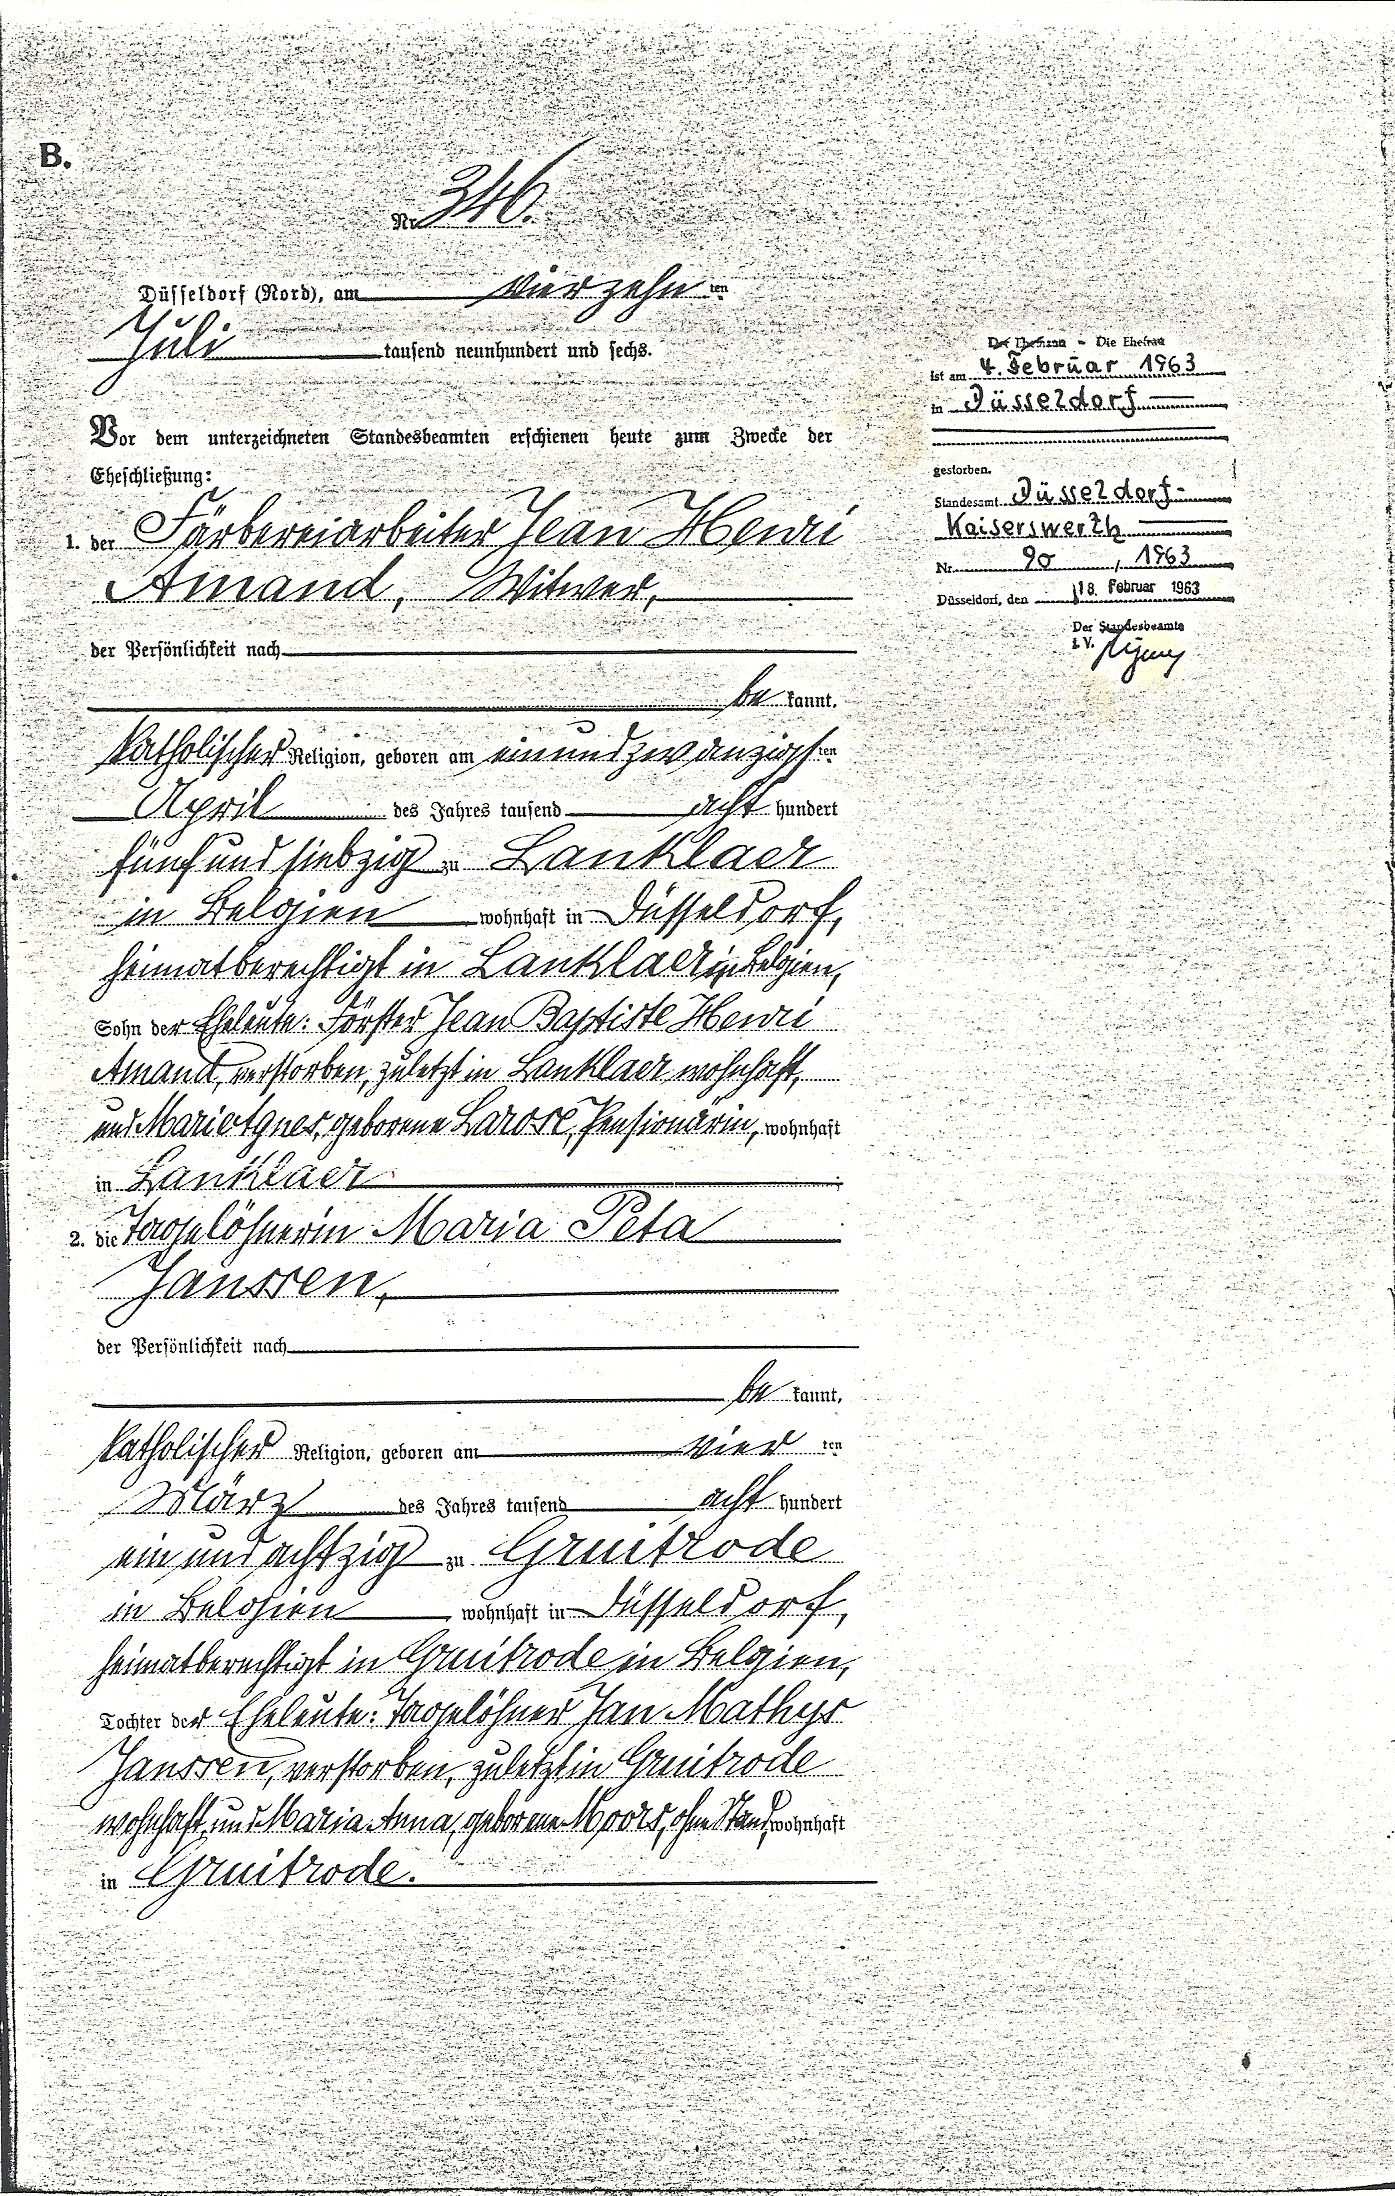 B.
Nr. 346.
Düsseldorf (Nord), am vierzehn ten
Juli tausend neunhundert und sechs.
Vor dem unterzeichneten Standesbeamten erschienen heute zum Zwecke der
Eheschließung:
1. der Färbereiarbeiter Jean Henri
Amand, Witwer,
der Persönlichkeit nach
be kannt,
katholischer Religion, geboren am einundzwanzigsten
April des Jahres tausend acht hundert
fünf und siebzig zu Lanklaer
in Belgien wohnhaft in Düsseldorf,
heimatberechtigt in Lanklaer in Belgien,
Sohn der Eheleute: Förster Jean Baptiste Henri
Amand, verstorben, zuletzt in Lanklaer wohnhaft,
und Marie Agnes, geborene Larose, Pensionärin, wohnhaft
in Lanklaer
2. die Tagelöhnerin Maria Peta
Janssen,
der Persönlichkeit nach
be kannt,
katholischer Religion, geboren am vier ten
März des Jahres tausend acht hundert
ein und achtzig zu Gruitrode
in Belgien wohnhaft in Düsseldorf,
heimatberechtigt in Gruitrode in Belgien,
Tochter der Eheleute: Tagelöhner Jan Mathys
Janssen, verstorben, zuletzt in Gruitrode
wohnhaft, und Maria Anna, geborene Moors, ohne Stand, wohnhaft
in Gruitrode.
Der Ehemann - Die Ehefrau
ist am 4. Februar 1963
in Düsseldorf
gestorben.
Standesamt Düsseldorf-
Kaiserswerth
Nr. 90, 1963
Düsseldorf, den 18. Februar 1963
Der Standesbeamte
i. V.